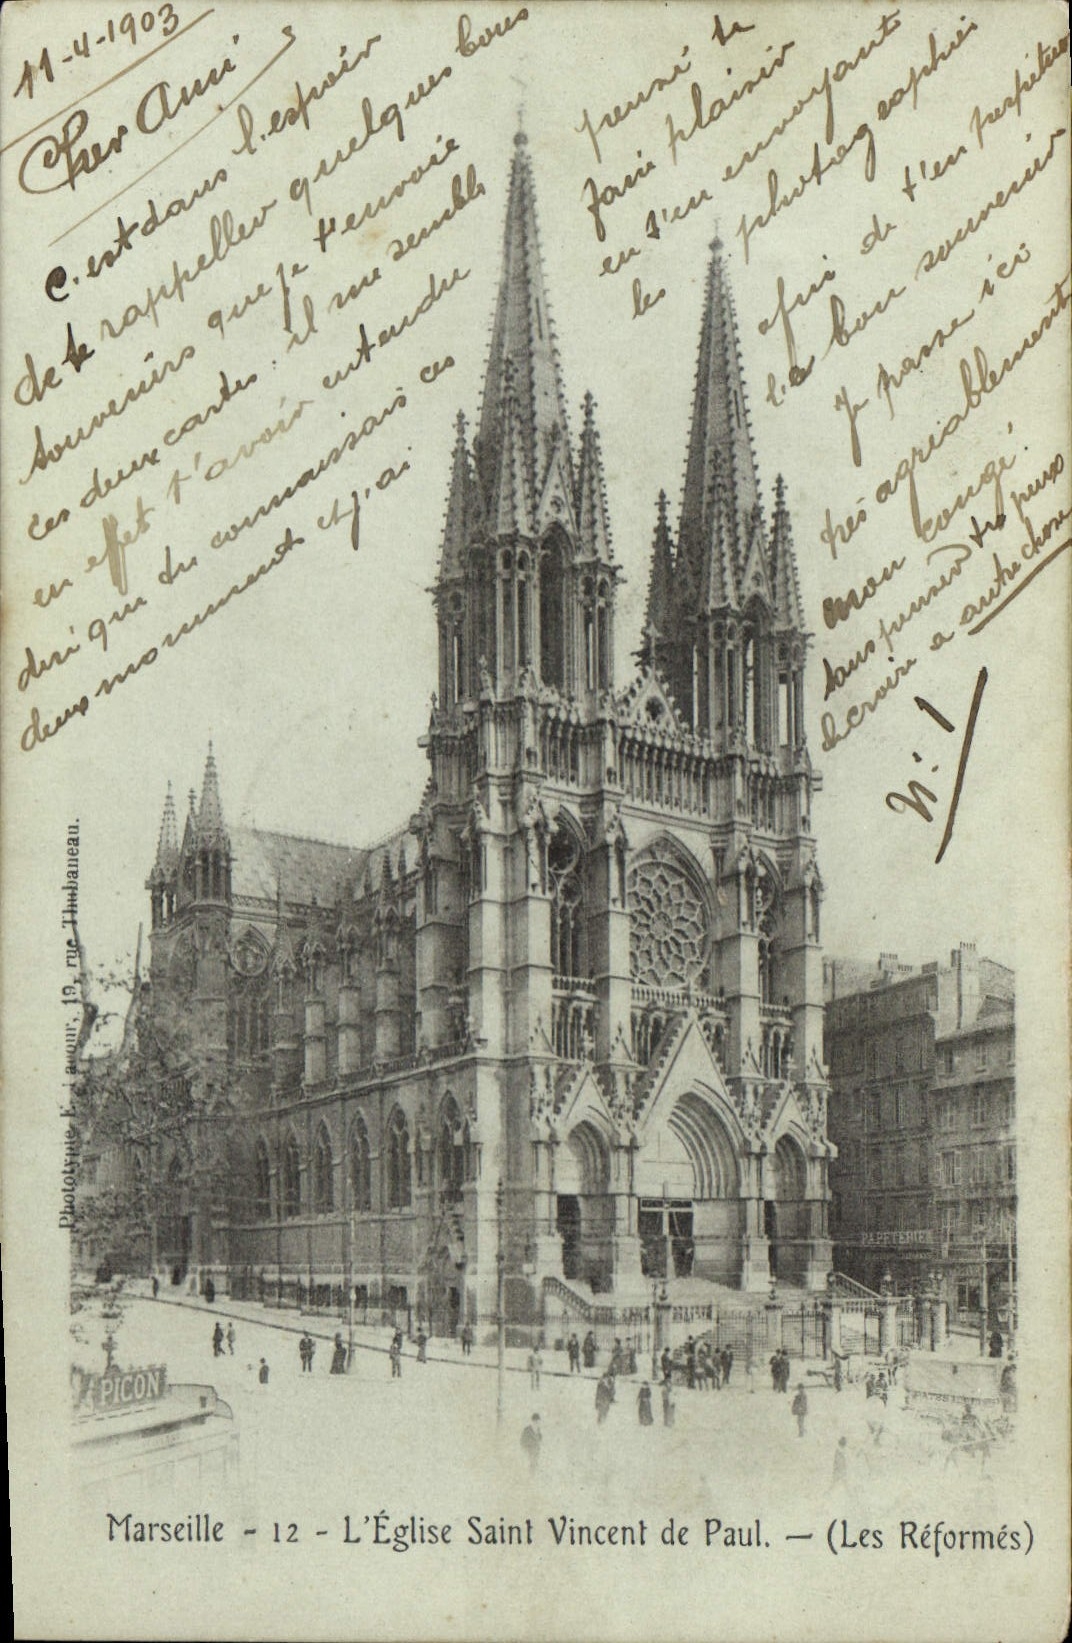 11-4-1903
Cher Ami
C'est dans l'espoir
de te rappeller quelques bons
souvenirs que je t'envoie
ces deux cartes: il me semble
en effet t'avoir entendu
dire que tu connaissais ces
deux monuments et j'ai
pensé te
faire plaisir
en t'en envoyant
les photographies
afin de t'en perpétuer
le bon souvenir
Je passe ici
très agréablement
mon congé.
Tu peux
autre chose
N° 1
Phototypie E. Lacour, 19, rue Thubaneau.
PAPETERIE
PICON
Marseille - 12 - L'Église Saint Vincent de Paul. — (Les Réformés)